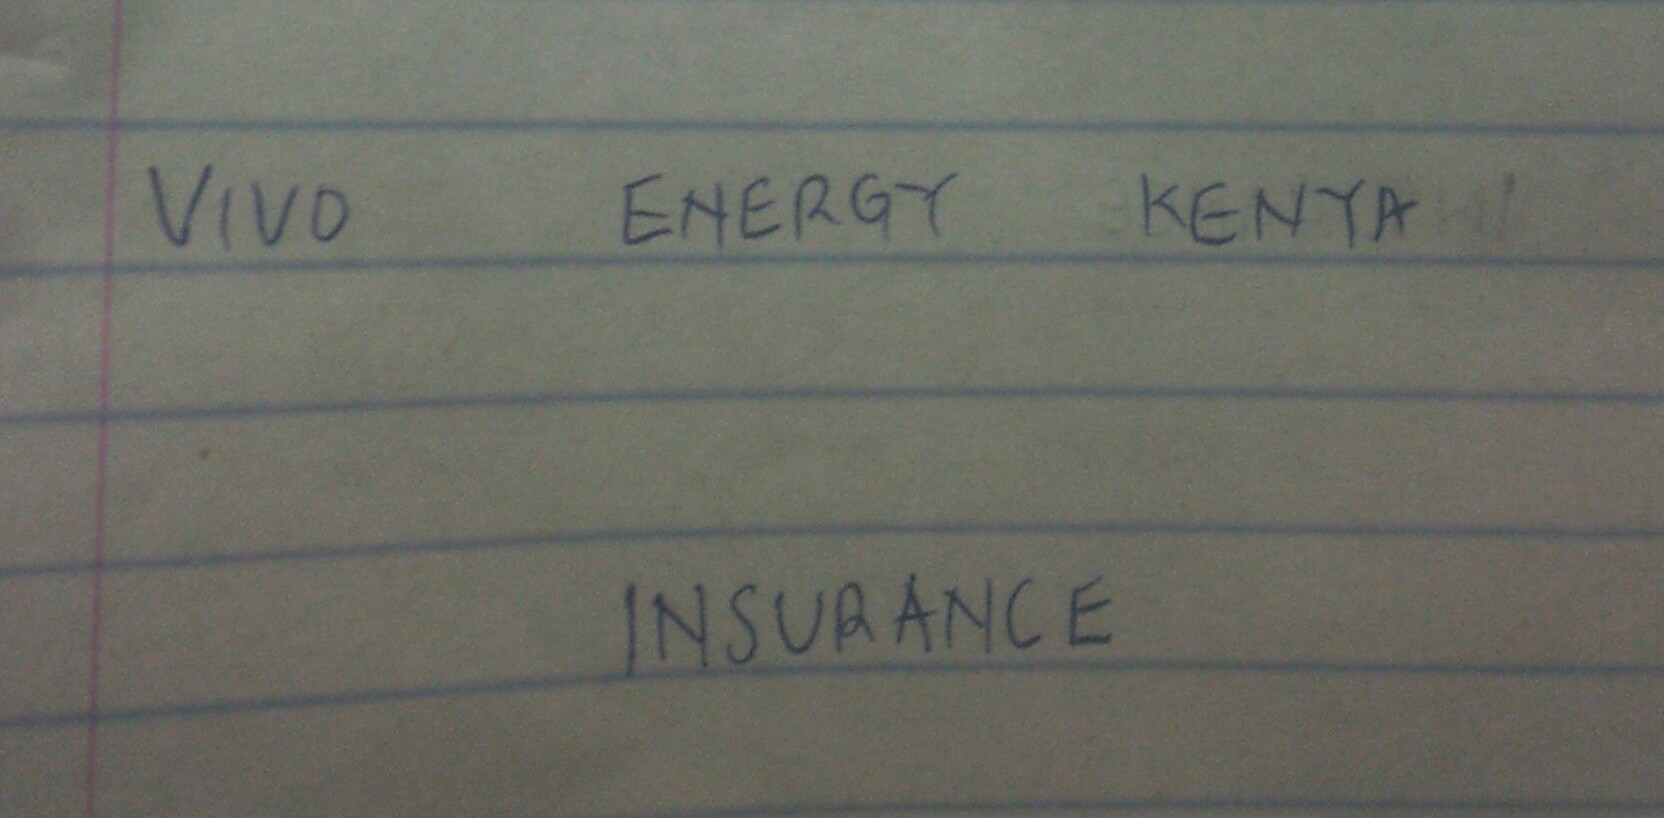 VIVO ENERGY KENYA
INSURANCE